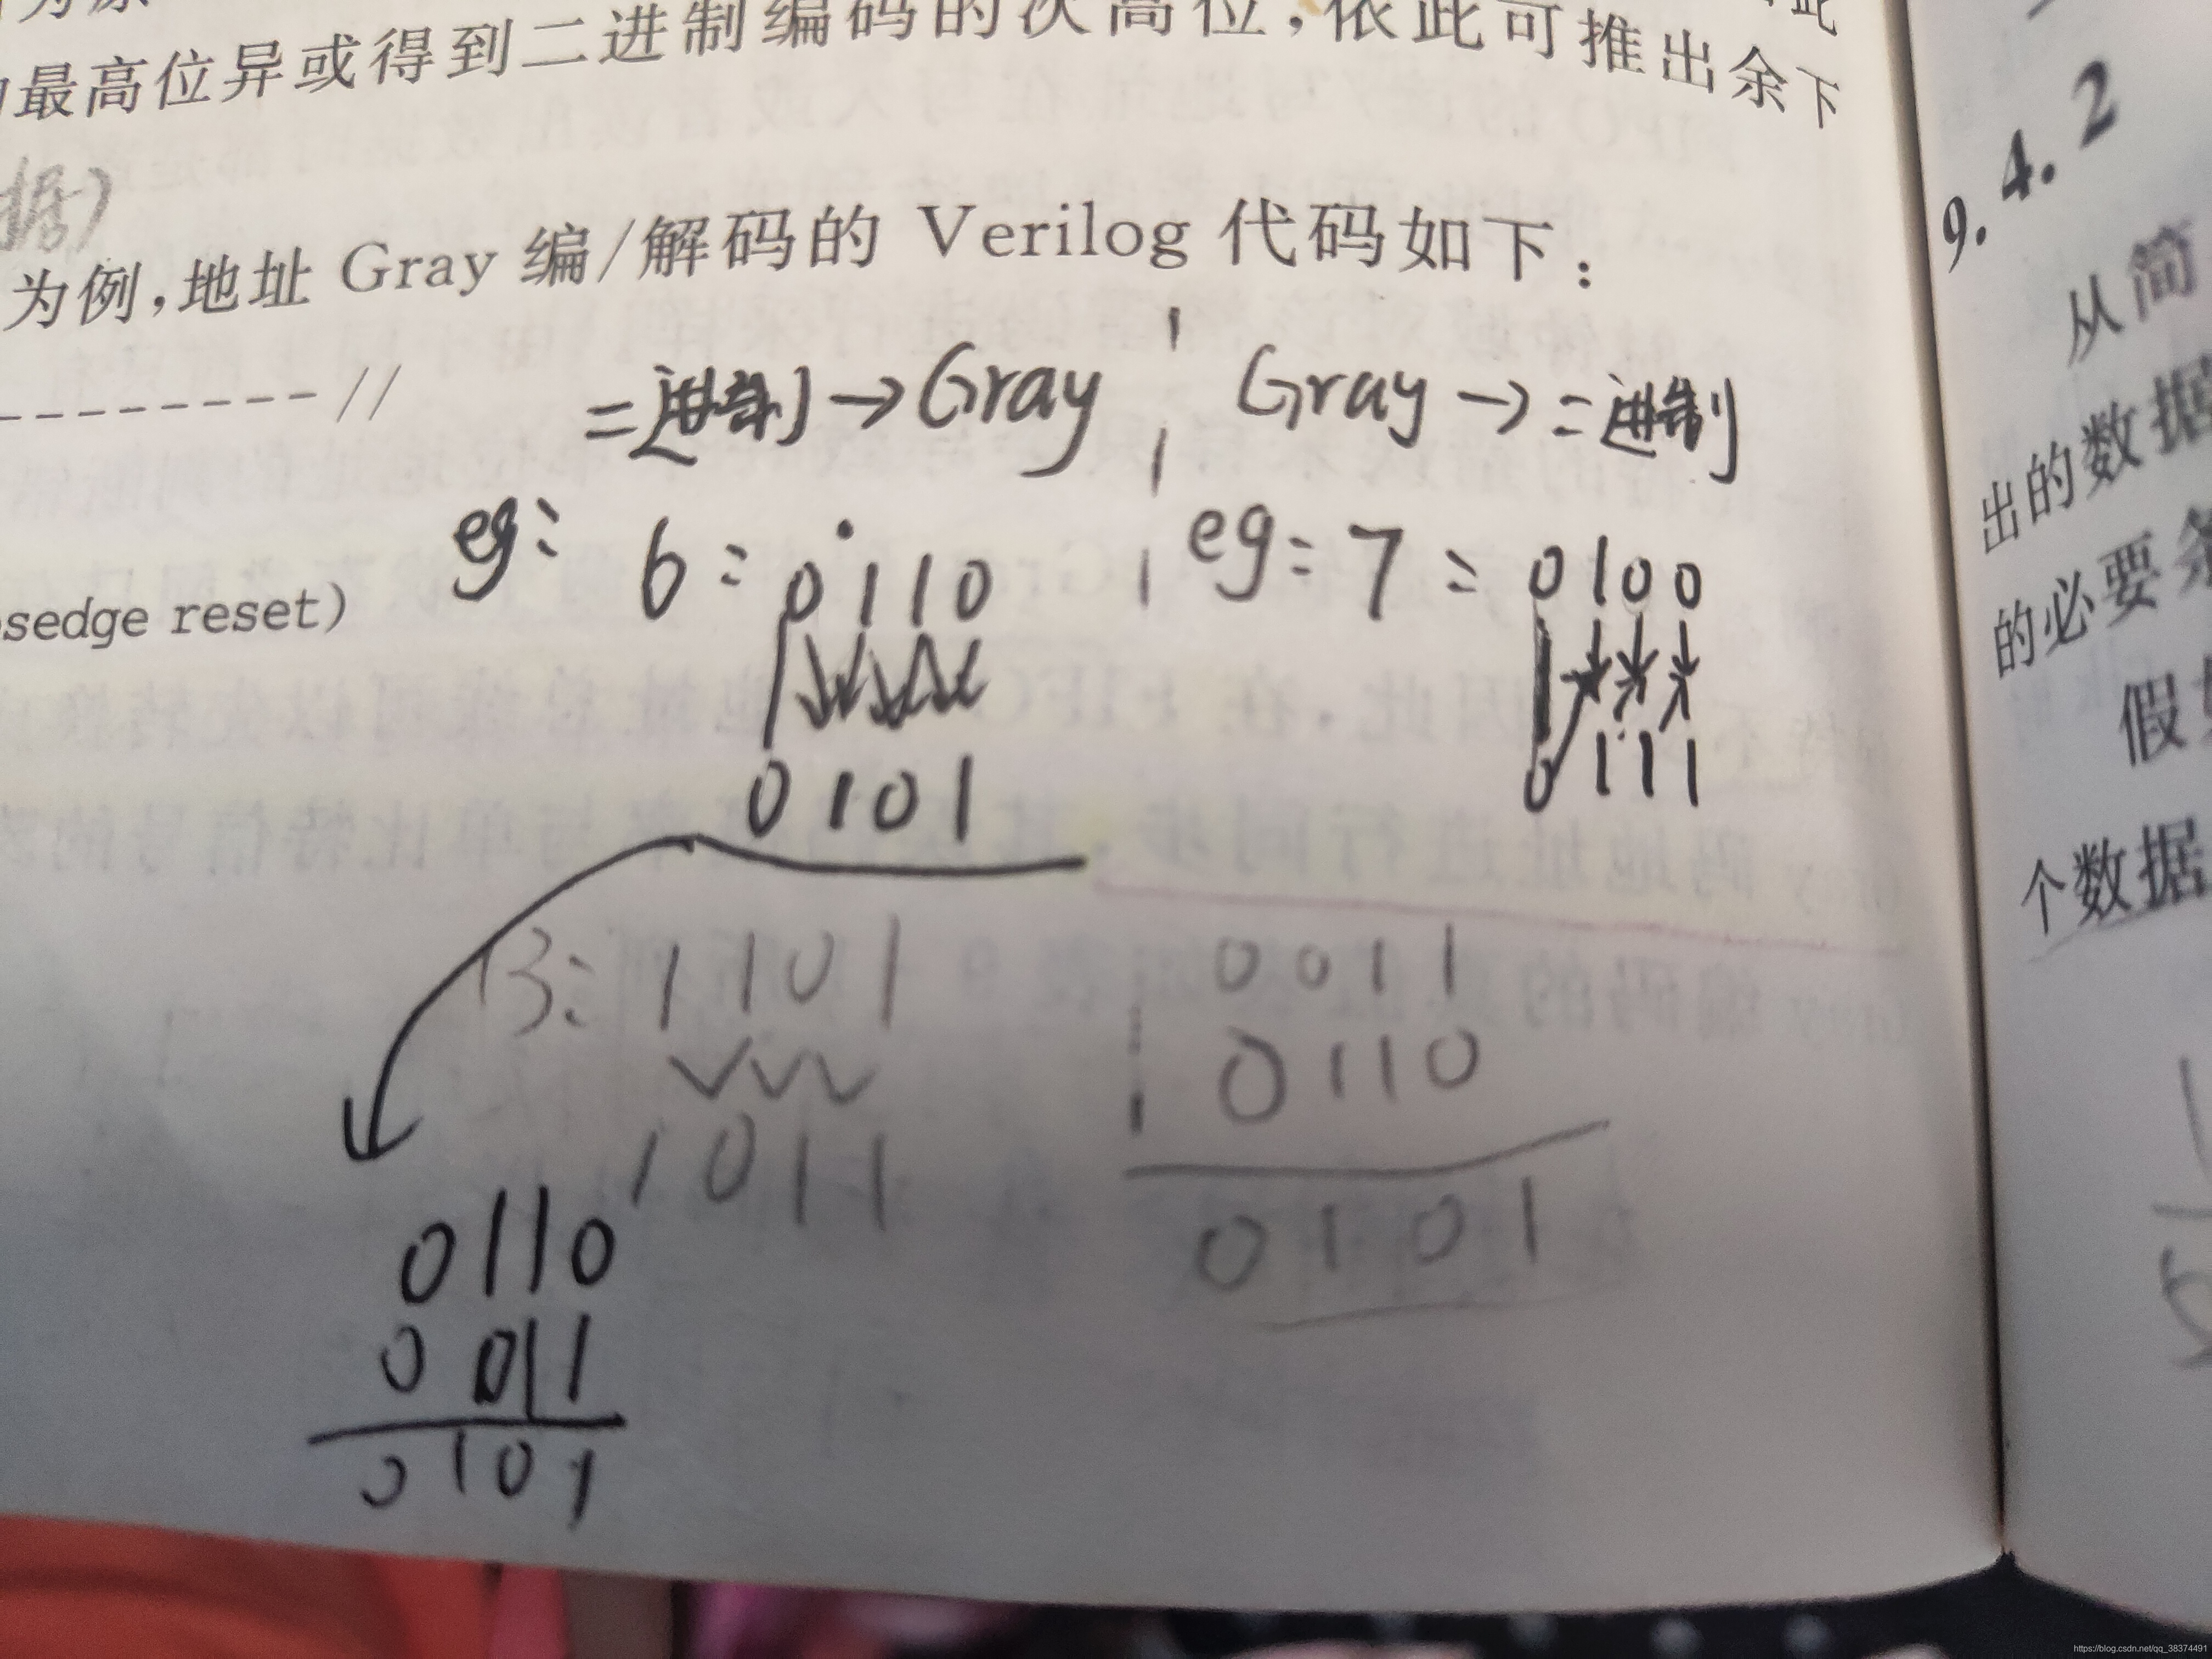 最高位异或得到二进制编码的次高位,依此可推出余下
据)
为例,地址 Gray 编/解码的 Verilog 代码如下:
--------- //
二进制→Gray
Gray→二进制
eg: 6: 0110
eg: 7: 0100
sedge reset)
0101
0111
13: 1101
1011
0011
0110
0101
0110
0011
0101
9.4.2
从简
出的数据
的必要条
假如
个数据
https://blog.csdn.net/qq_38374491